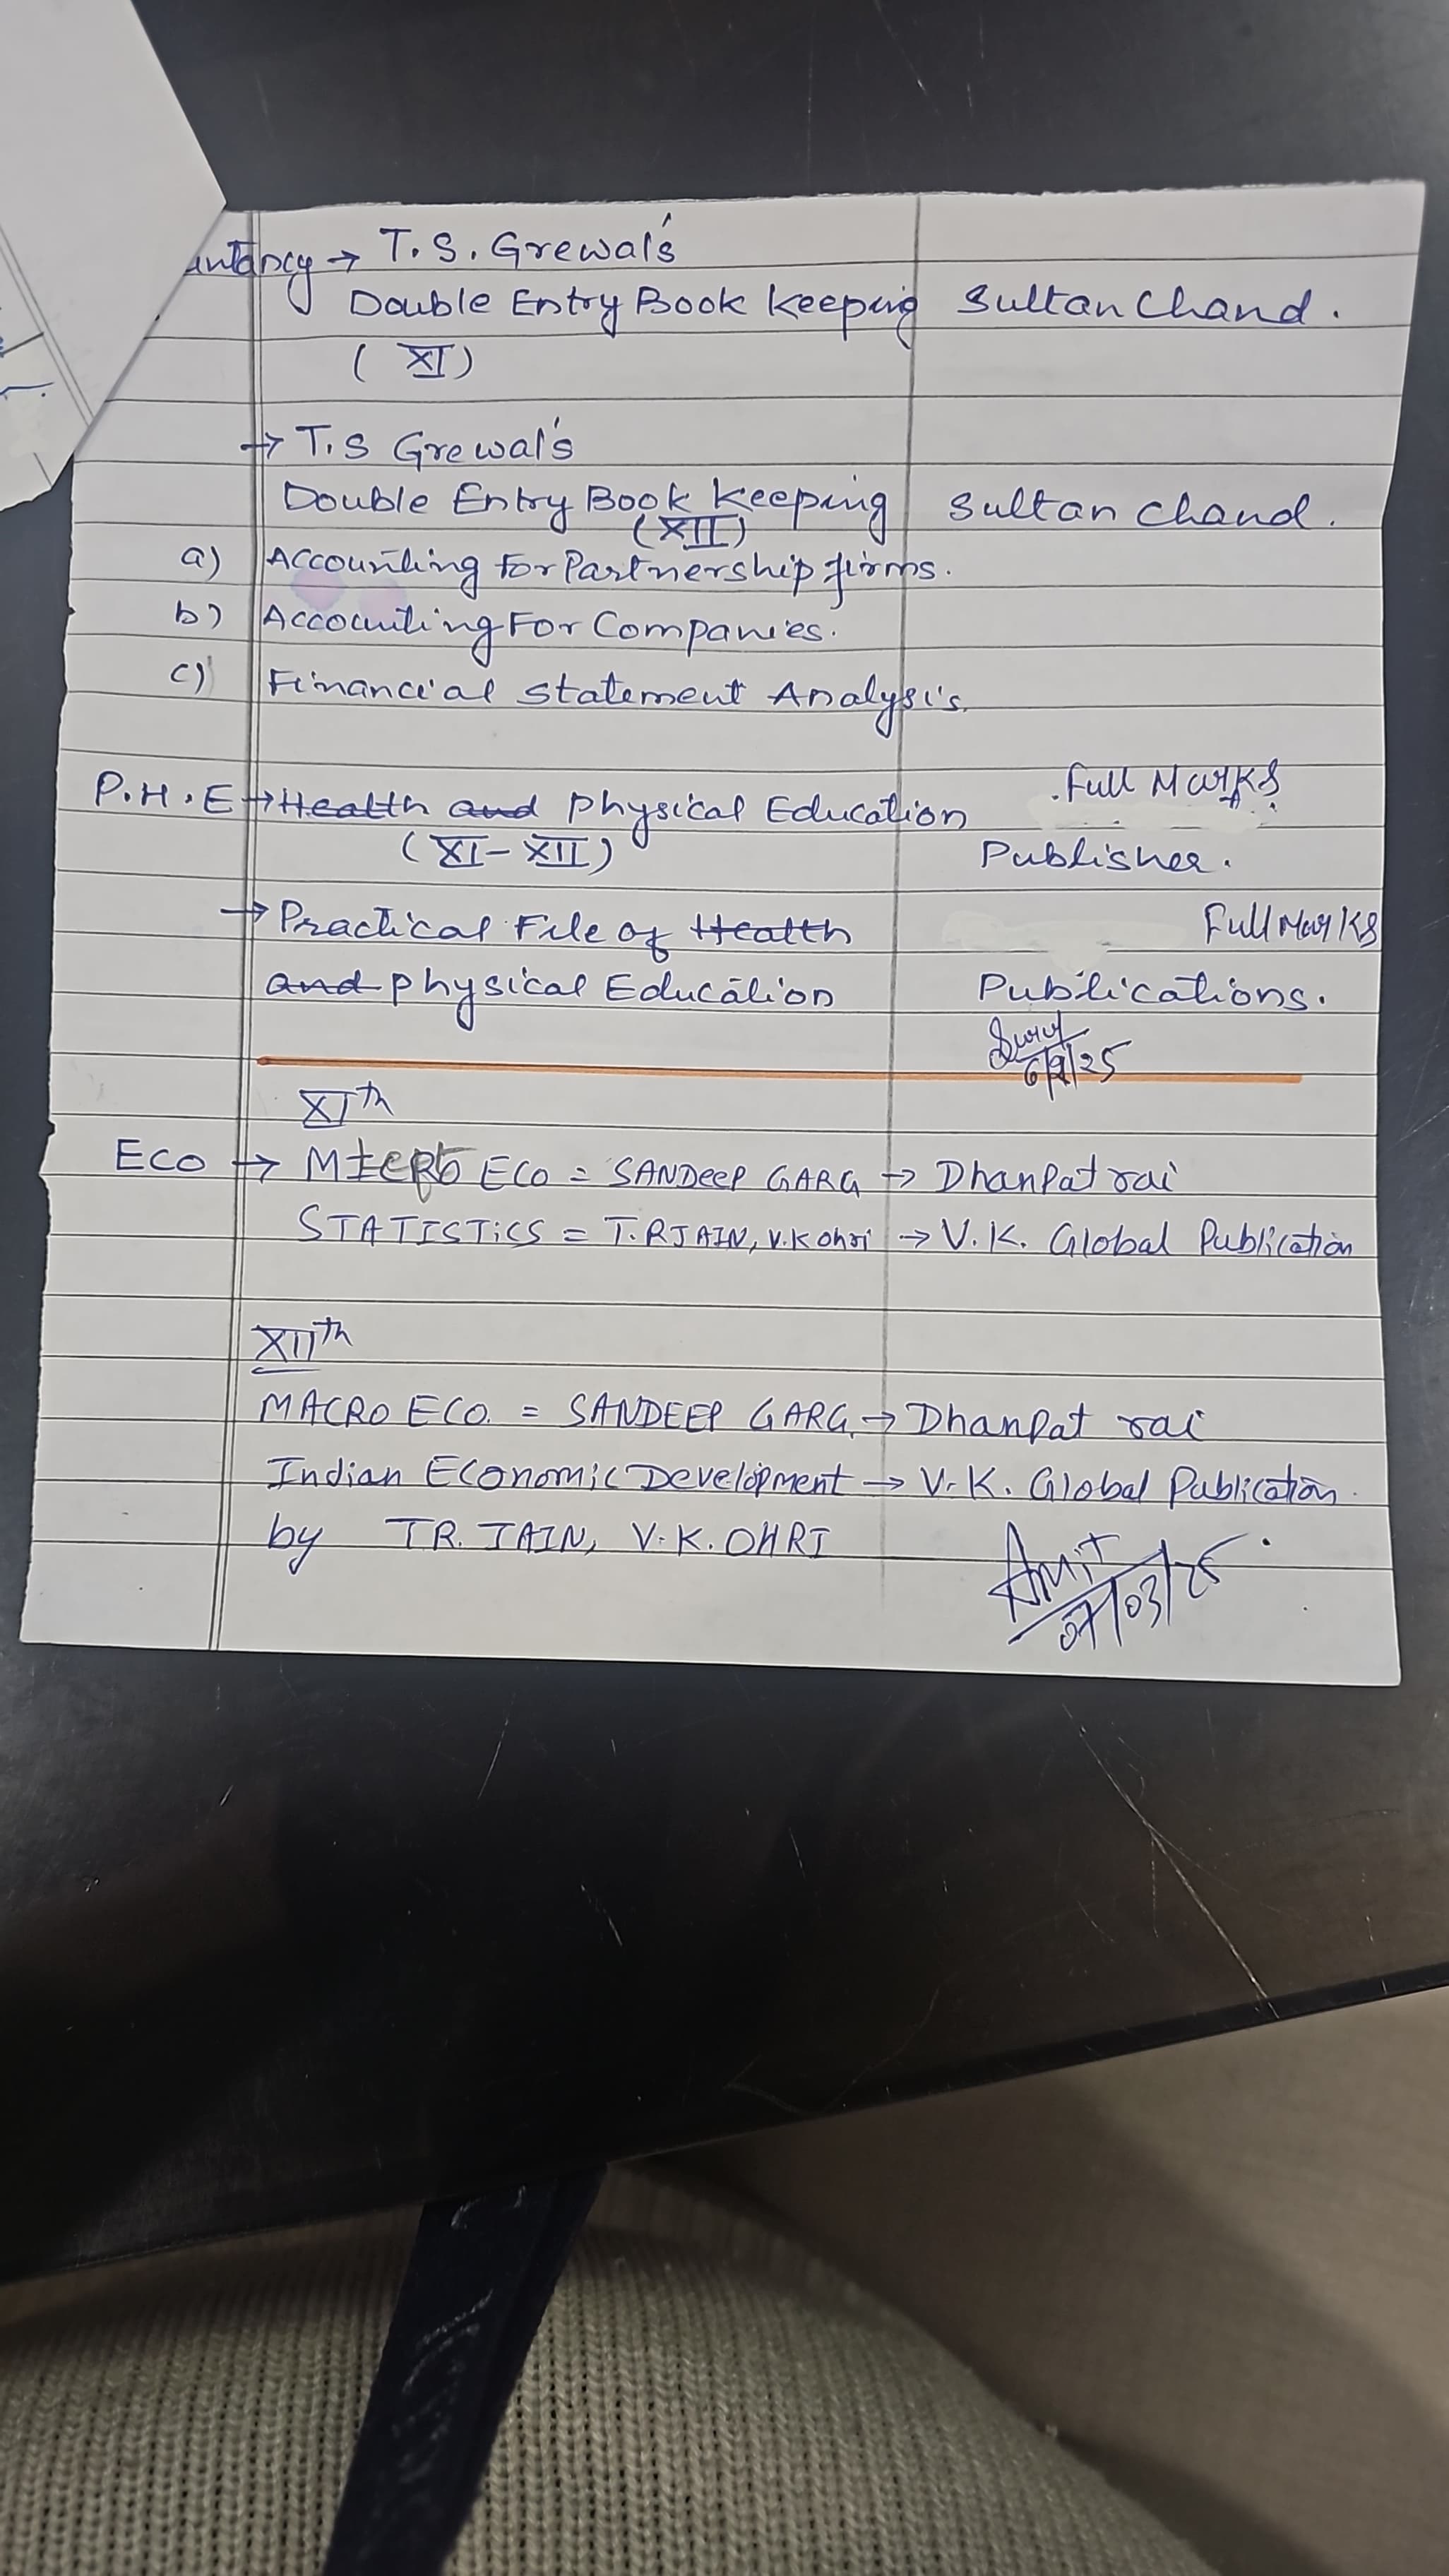 untancy → T.S. Grewal's
Double Entry Book Keeping Sultan Chand.
(XI)
→ T.S Grewal's
Double Entry Book Keeping Sultan Chand.
(XII)
a) Accounting for Partnership firms.
b) Accounting For Companies.
c) Financial Statement Analysis.
Full Marks
P.H.E → Health and Physical Education
(XI-XII) Publisher.
→ Practical File of Health Full Marks
and Physical Education Publications.
XIth
Eco → Micro ECO = SANDEEP GARG → Dhanpat rai
STATISTICS = T.R JAIN, V.K Ohri → V.K. Global Publication
XIIth
MACRO ECO. = SANDEEP GARG → Dhanpat rai
Indian Economic Development → V.K. Global Publication.
by TR. JAIN, V.K. OHRI
Amit
07/03/25